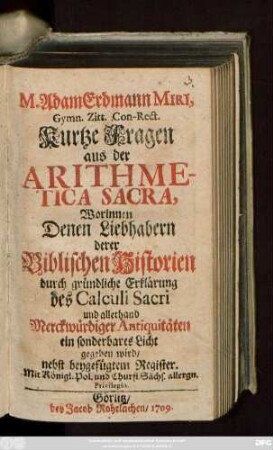 3.
M. Adam Erdmann MIRI,
Gymn. Zitt. Con-Rect.
Kurtze Fragen
aus der
ARITHME-
TICA SACRA,
Worinnen
Denen Liebhabern
derer
Biblischen Historien
durch gründliche Erklärung
des Calculi Sacri
und allerhand
Merckwürdiger Antiquitäten
ein sonderbares Licht
gegeben wird/
nebst beygefügtem Register.
Mit Königl. Pol. und Churfl. Sächs. allergn.
Privilegio.
Görlitz,
bey Jacob Rohrlachen/ 1709.